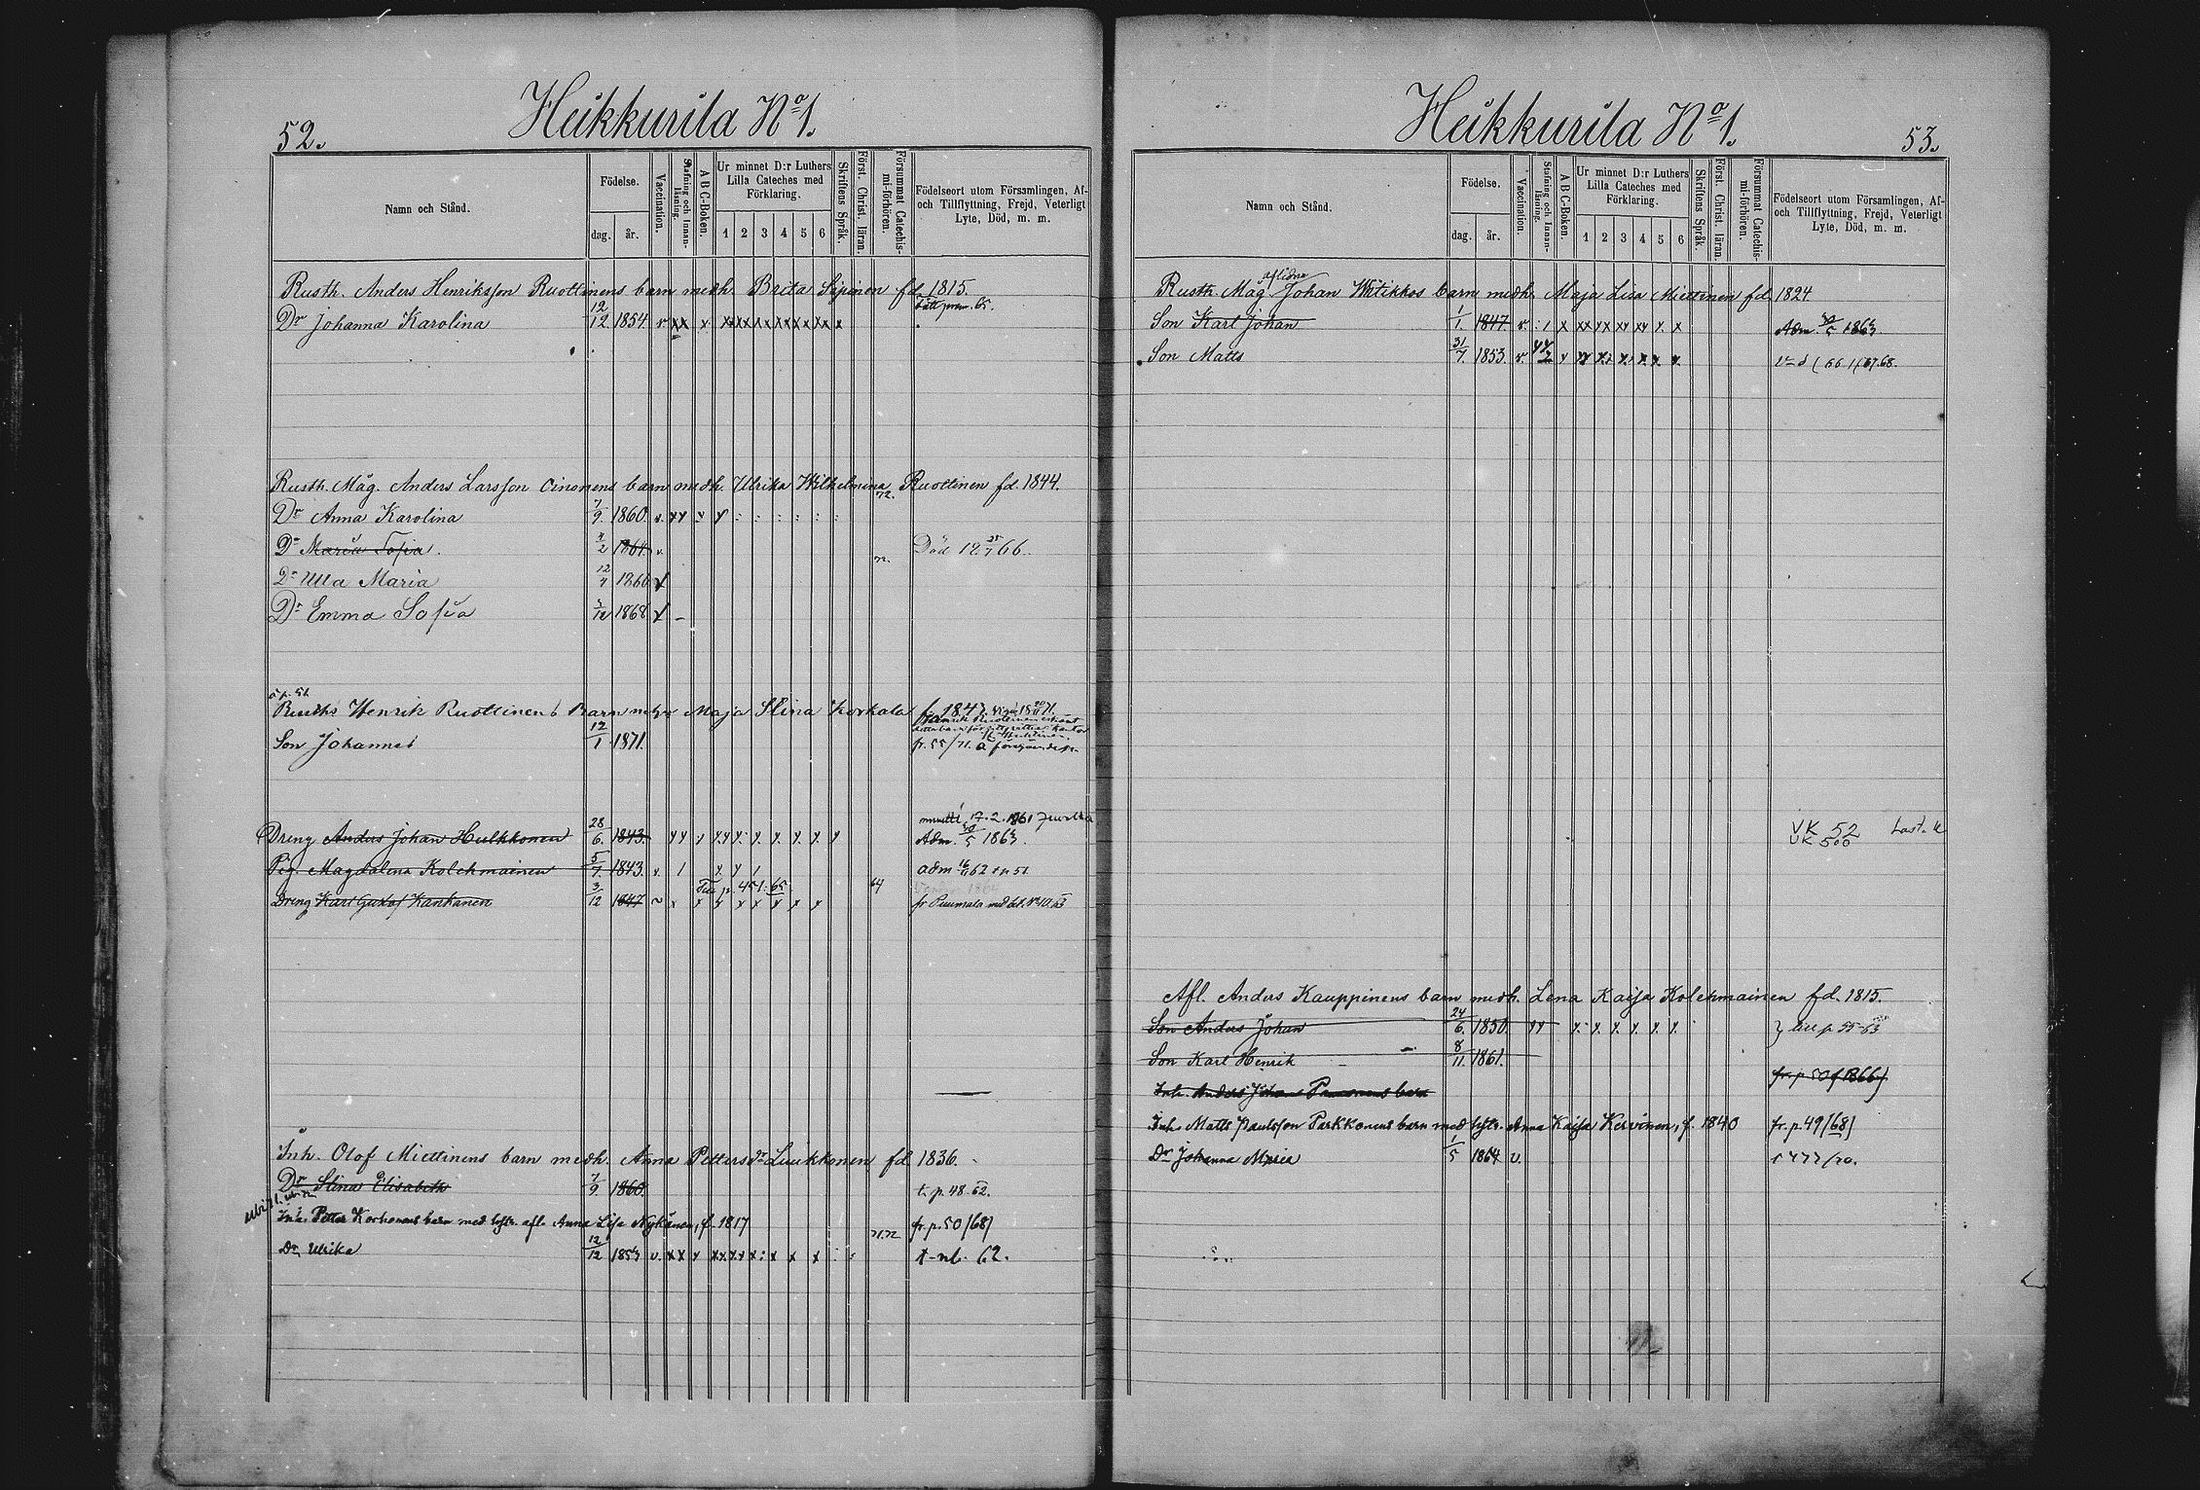 52.
Heikkurila No 1.
Namn och Stånd.
Födelse.
dag.
år.
Vaccination.
Stafning och Innanläsning.
A B C-Boken.
Ur minnet D:r Luthers
Lilla Cateches med
Förklaring.
1 2 3 4 5 6
Skriftens Språk.
Först. Christ. läran.
Försummat Catechismi-förhören.
Födelseort utom Församlingen, Af-
och Tillflyttning, Frejd, Veterligt
Lyte, Död, m. m.
Rusth. Anders Henriksson Ruottinens barn medh. Brita Sipinen fd. 1815.
Dr Johanna Karolina 12/12 1854.
Rusth. Måg. Anders Larsson Oinonens barn medh. Ulrika Wilhelmina Ruottinen fd. 1844.
Dr Anna Karolina 7/9 1860.
Dr Maria Sofia. 1864. Död 66.
Dr Ulla Maria 12/4 1866
Dr Emma Sofia 1868
Henrik Ruottinens Barn Maja Stina Korkala f. 1847.
Son Johannes 12/1 1871.
Dreng Anders Johan Hulkkonen 28/6. 1843. Adm. 30/5 1863.
Pig. Magdalena Kolehmainen 5/7. 1843. adm 62
Dreng Karl Gustaf Kankanen 3/12 1847 fr Puumala med bet. No 10. 63
Inh. Olof Miettinens barn medh. Anna Pettersdr Liukkonen fd 1836.
Dr Stina Elisabeth 7/9 1860. t. p. 48-62.
Inh. Petter Korhonens barn med hstr. afl. Anna Lisa Nykänen, f. 1817 fr. p. 50/68/
Dr Ulrika 12/12 1853 62.
Heikkurila No 1.
53.
Namn och Stånd.
Födelse.
dag.
år.
Vaccination.
Stafning och Innanläsning.
A B C-Boken.
Ur minnet D:r Luthers
Lilla Cateches med
Förklaring.
1 2 3 4 5 6
Skriftens Språk.
Först. Christ. läran.
Försummat Catechismi-förhören.
Födelseort utom Församlingen, Af-
och Tillflyttning, Frejd, Veterligt
Lyte, Död, m. m.
Rusth. Måg aflidne Johan Witikkos barn medh. Maja Lisa Miettinen fd. 1824.
Son Karl Johan 1/1. 1847. Adm. 30/5 1863
Son Matts 31/7 1853.
VK 52
VK 500
Afl. Anders Kauppinens barn medh. Lena Kaisa Kolehmainen fd. 1815.
Son Anders Johan 24/6. 1850.
Son Karl Henrik 8/11. 1861.
fr. p 50/1866/
Inh. Anders Johan barn
Inh. Matts Paulsson Parkkonens barn med hstr. Anna Kaisa Kervinen, f. 1840 fr. p. 49/68/
Dr Johanna Maria 1/5 1864